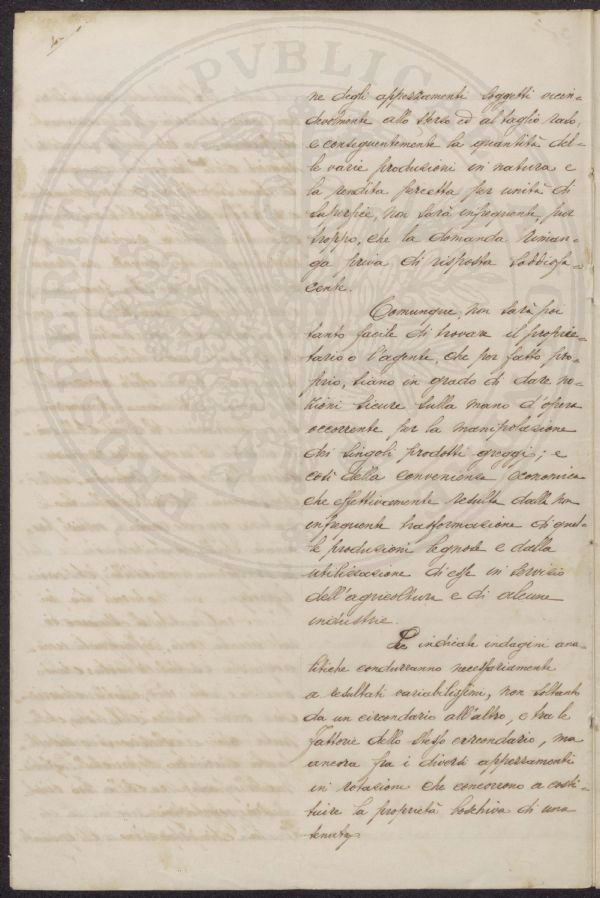 ne degli appezzamenti soggetti vicen-
devolmente allo sterzo ed al taglio raso,
e conseguentemente la quantità del-
le varie produzioni in natura e
la rendita percetta per unità di
superfice, non sarà infrequente, pur
troppo, che la domanda riman-
ga priva di risposta soddisfa-
cente.
Comunque, non sarà poi
tanto facile di trovare il proprie-
tario o l'agente, che per fatto pro-
prio, siano in grado di dare no-
zioni sicure sulla mano d'opera
occorrente per la manipolazione
dei singoli prodotti greggi; e
così della convenienza economica
che effettivamente resulta dalla non
infrequente trasformazione di quel-
le produzioni legnose e dalla
utilizzazione di esse in servizio
dell'agricoltura e di alcune
industrie.
Le indicate indagini ana-
litiche condurranno necessariamente
a resultati variabilissimi, non soltanto
da un circondario all'altro, e tra le
Fattorie dello stesso circondario, ma
ancora fra i diversi appezzamenti
in rotazione che concorrono a costi-
tuire la proprietà boschiva di una
tenuta.
PVBLICAE
PROSPERITATI